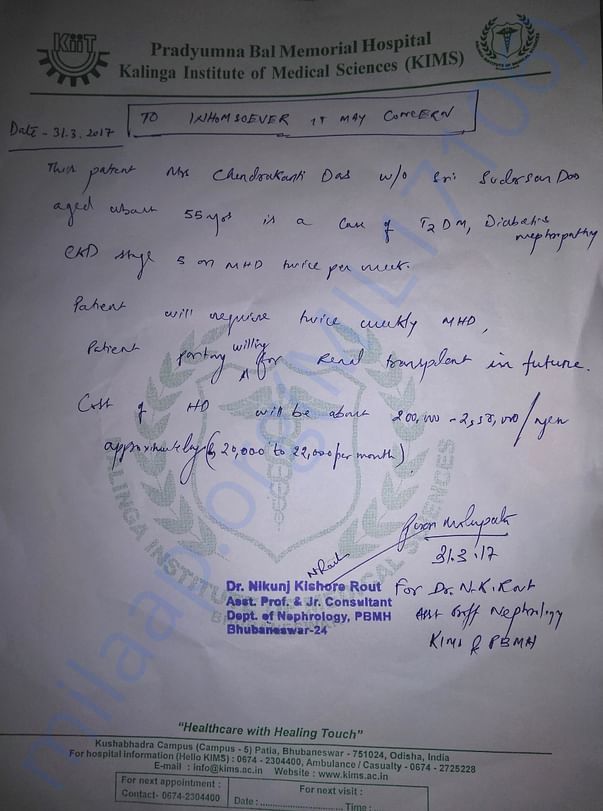 KiiT
Pradyumna Bal Memorial Hospital
Kalinga Institute of Medical Sciences (KIMS)
Date - 31.3.2017
TO INHOMSOEVER IT MAY CONCERN
This patient Mrs Chendrakanti Das w/o Sri Sudarsan Das
aged about 55 yrs is a case of T2 DM, Diabetis
nephropathy
CKD stage 5 on MHD twice per week.
Patient will require twice weekly MHD,
willing
Patient party for Renal transplant in future.
Cost of HD will be about 200,000 - 2,50,000/year
approximately (Rs 20,000 to 22,000 per month)
31.3.17
Dr. Nikunj Kishore Rout
Asst. Prof. & Jr. Consultant
Dept. of Nephrology, PBMH
Bhubaneswar-24
For Dr. N.K. Rout
Asst Proff Nephrology
KIMS & PBMH
KALINGA INSTITUTE OF MEDICAL SCIENCES
milaap.org
"Healthcare with Healing Touch"
Kushabhadra Campus (Campus - 5) Patia, Bhubaneswar - 751024, Odisha, India
For hospital information (Hello KIMS) : 0674 - 2304400, Ambulance / Casualty - 0674 - 2725228
E-mail : info@kims.ac.in Website : www.kims.ac.in
For next appointment :
Contact- 0674-2304400
For next visit :
Date : .......................... Time : ................